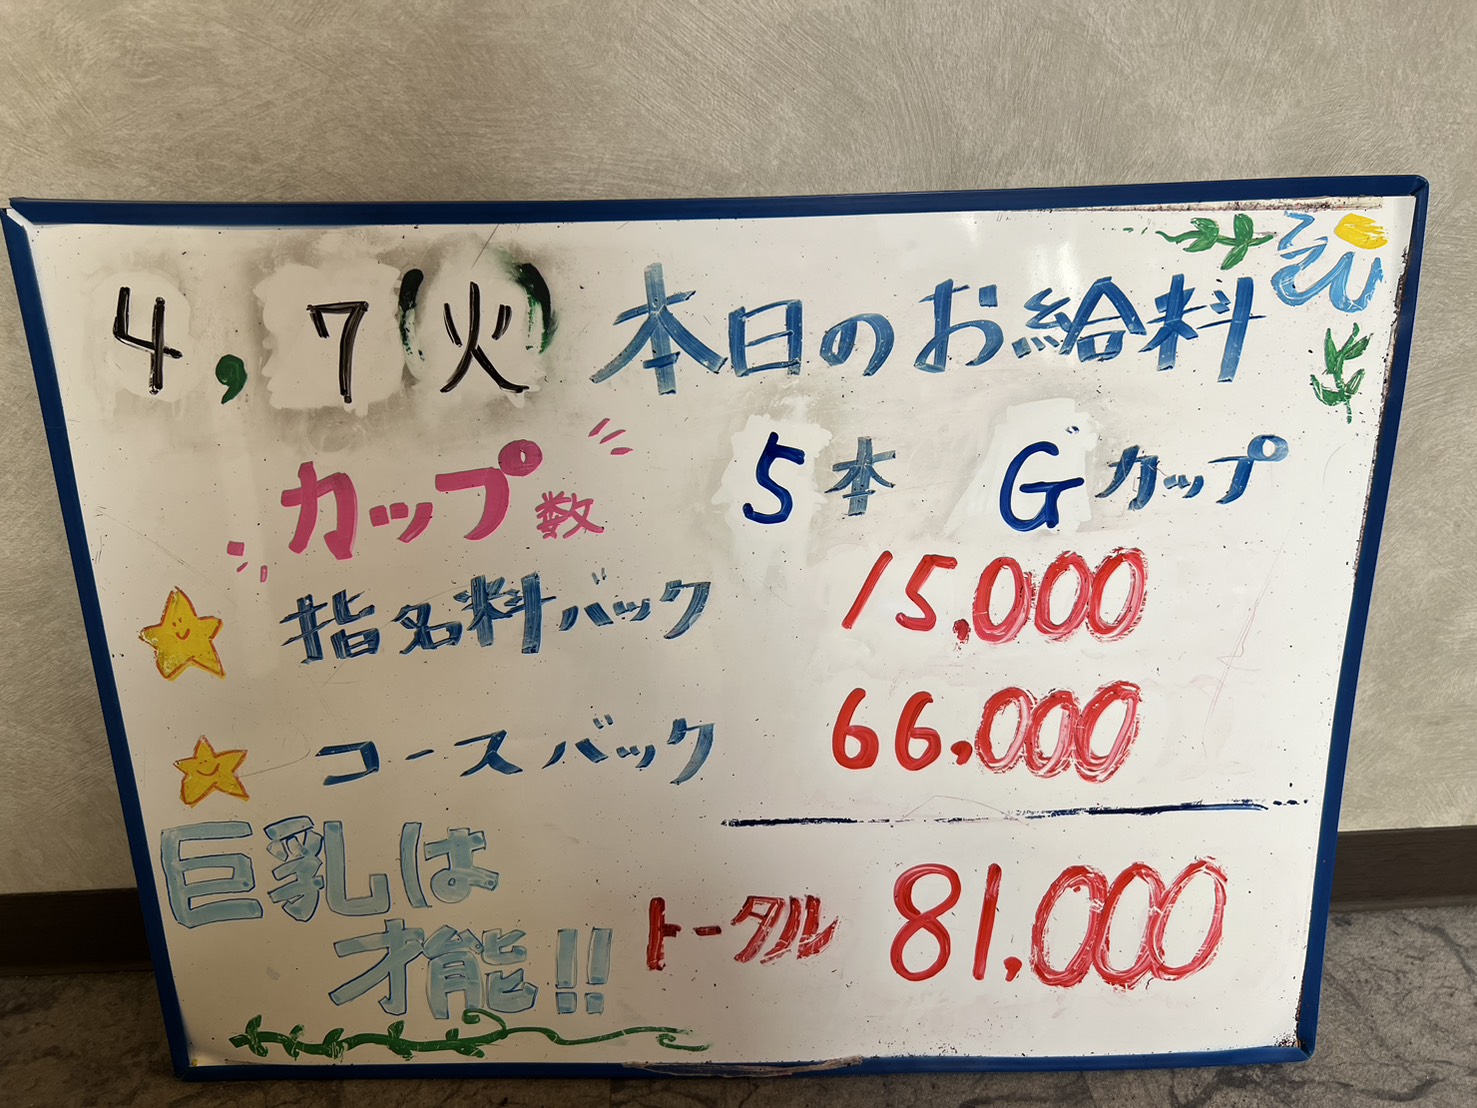 4,7(火) 本日のお給料
カップ数 5本 Gカップ
指名料バック 15,000
コースバック 66,000
巨乳は
才能!!
トータル 81,000